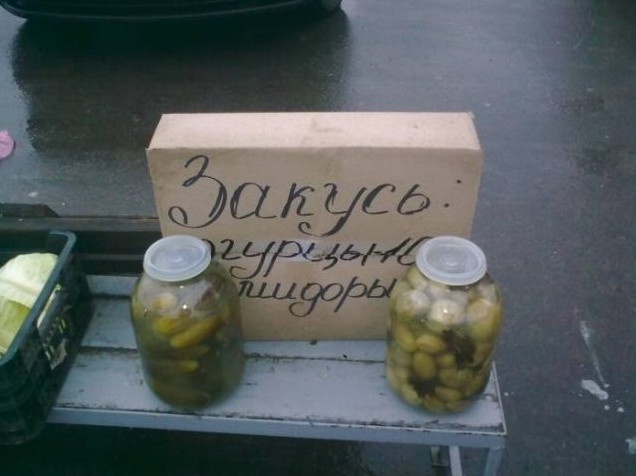 Закусь:
огурцы+по
мидоры